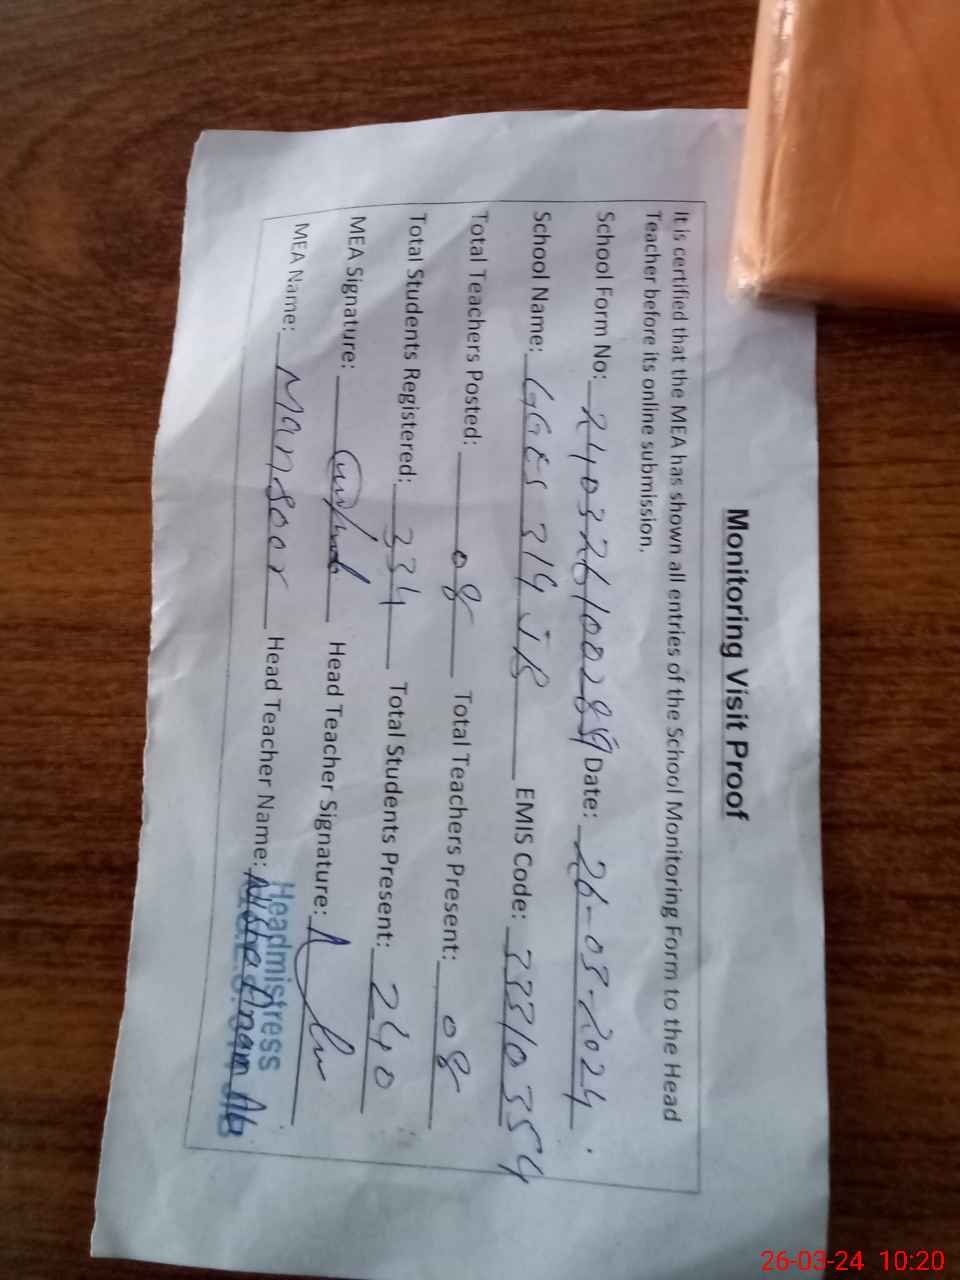 Monitoring Visit Proof
It is certified that the MEA has shown all entries of the School Monitoring Form to the Head
Teacher before its online submission.
School Form No: 240326100289 Date: 26-03-2024
School Name: GGES 319 JB EMIS Code: 33310354
Total Teachers Posted: 08 Total Teachers Present: 08
Total Students Registered: 334 Total Students Present: 240
MEA Signature: Head Teacher Signature:
MEA Name: Mansoor Head Teacher Name:
Headmistress
26-03-24 10:20